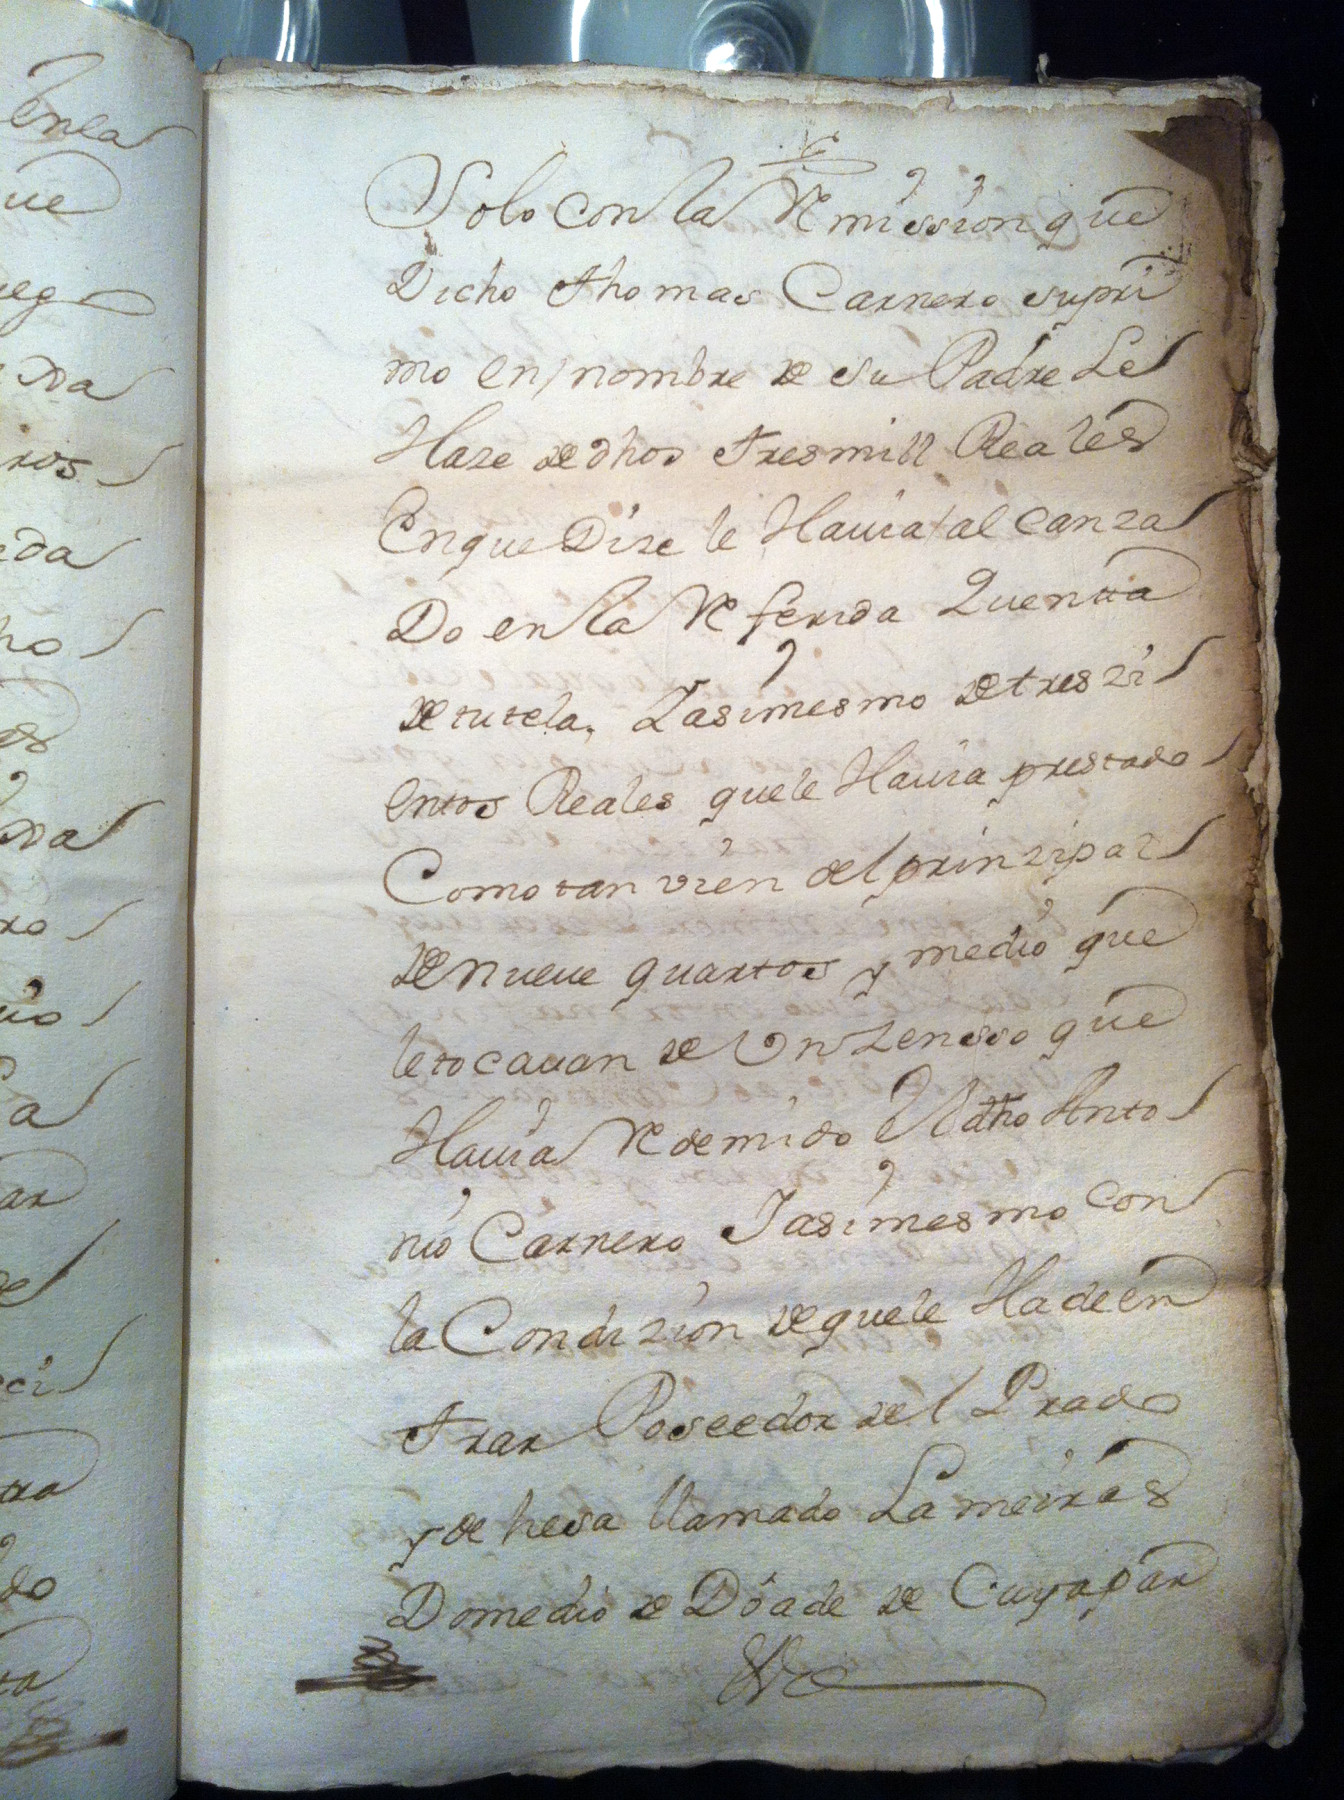 enla
Solo con la Remission que
ue
Dicho Thomas Carnero supri
mo en nombre de su Padre Le
Da
Haze de dhos tres mill Reales
ros
En que Dize le Hauia alcanza
da
Do en la Referida Quenta
ho
de tutela, Y asimesmo de tres zi
entos Reales que le Hauia prestado
Da
Como tan vien del prinzipal
ro
de nueue quartos y medio que
le tocauan de Un Zensso que
a
Hauia Redemido El dho Anto
ar
nio Carnero Y asimesmo con
de
la Condizion de que le Ha de en
ci
trar Poseedor del Prado
ta
y dehesa llamado Lameiras
do
Domedio de Dóade de Cuya par
ta